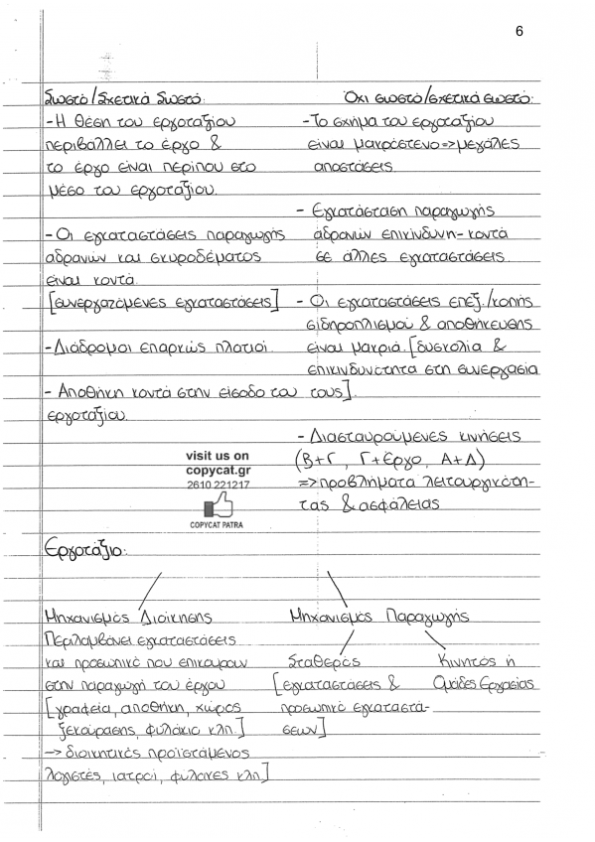 6
Σωστό/Σχετικά Σωστό:
-Η θέση του εργοταξίου
περιβάλλει το έργο &
το έργο είναι περίπου στο
μέσο του εργοταξίου.
-Οι εγκαταστάσεις παραγωγής
αδρανών και σκυροδέματος
είναι κοντά.
[συνεργαζόμενες εγκαταστάσεις]
-Διάδρομοι επαρκώς πλατιοί.
-Αποθήκη κοντά στην είσοδο του
εργοταξίου.
Όχι σωστό/σχετικά σωστό:
-Το σχήμα του εργοταξίου
είναι μακρόστενο=>μεγάλες
αποστάσεις.
- Εγκατάσταση παραγωγής
αδρανών επικίνδυνη-κοντά
σε άλλες εγκαταστάσεις.
- Οι εγκαταστάσεις επεξ./κοπής
σιδηροπλισμού & αποθήκευσης
είναι μακριά. [δυσκολία &
επικινδυνότητα στη συνεργασία
τους]
-Διασταυρούμενες κινήσεις
(Β+Γ, Γ+Έργο, Α+Δ)
=>προβλήματα λειτουργικότη-
τας & ασφάλειας
visit us on
copycat.gr
2610 221217
COPYCAT PATRA
Εργοτάξιο:
Μηχανισμός Διοίκησης
Περιλαμβάνει εγκαταστάσεις
και προσωπικό που επικουρουν
στην παραγωγή του έργου
[γραφεία, αποθήκη, χώρος
ξεκούρασης, φυλάκιο κλπ.]
-> διοικητικός προϊστάμενος
λογιστές, ιατροί, φύλακες κλπ]
Μηχανισμός Παραγωγής
Σταθερός
[εγκαταστάσεις &
προσωπικό εγκαταστά-
σεων]
Κινητός ή
Ομάδες Εργασίας